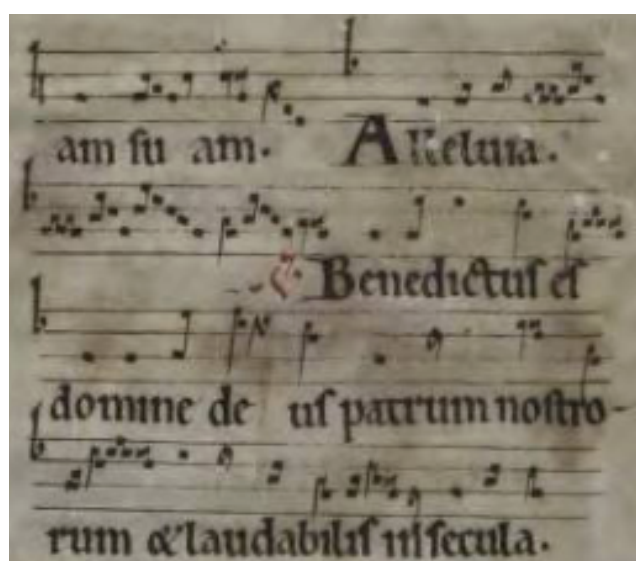 am su am. Alleluia.
℣. Benedictus es
domine de us patrum nostro-
rum & laudabilis in secula.